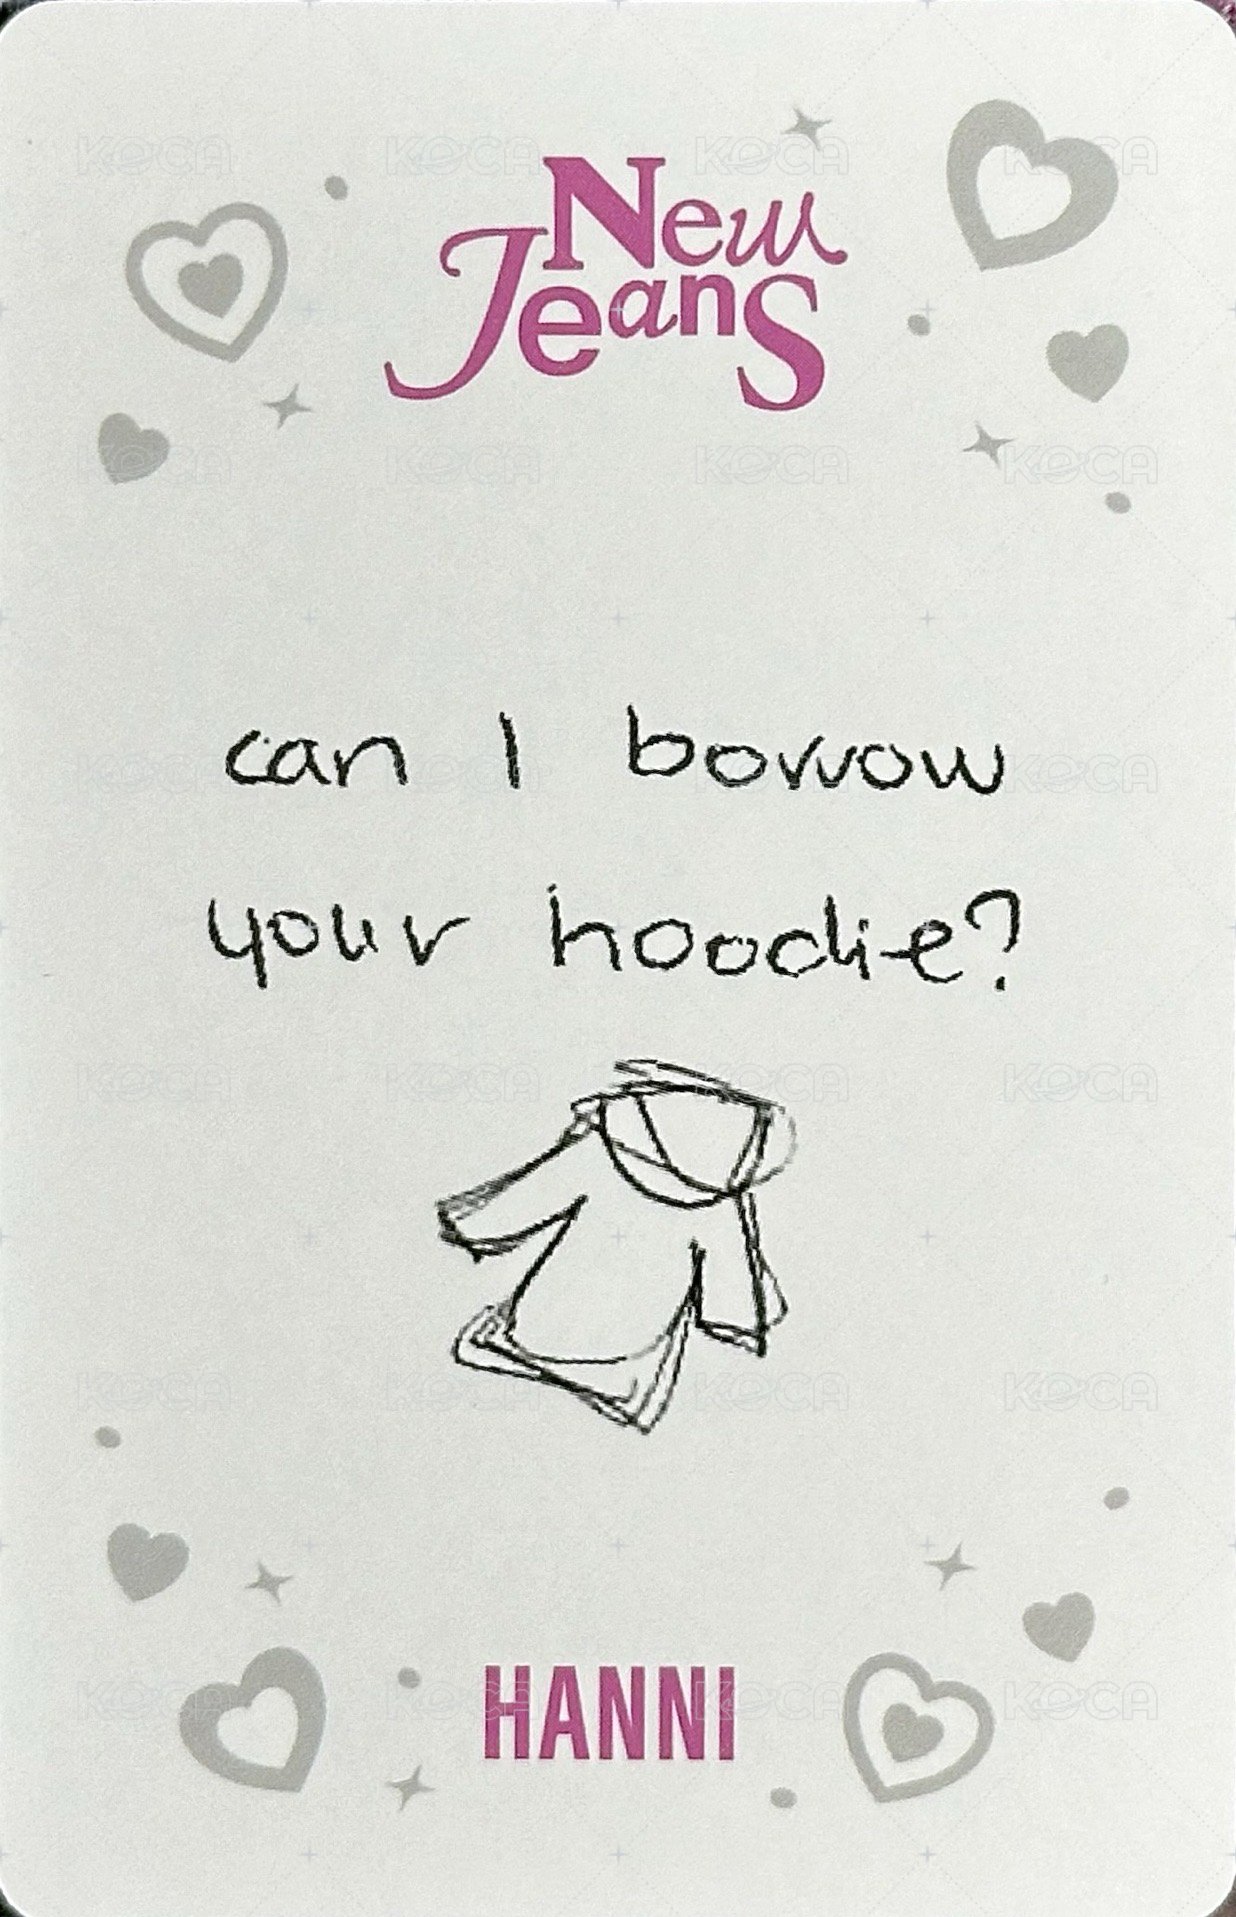 New
Jeans
can I borrow
your hoodie?
HANNI
KOCA